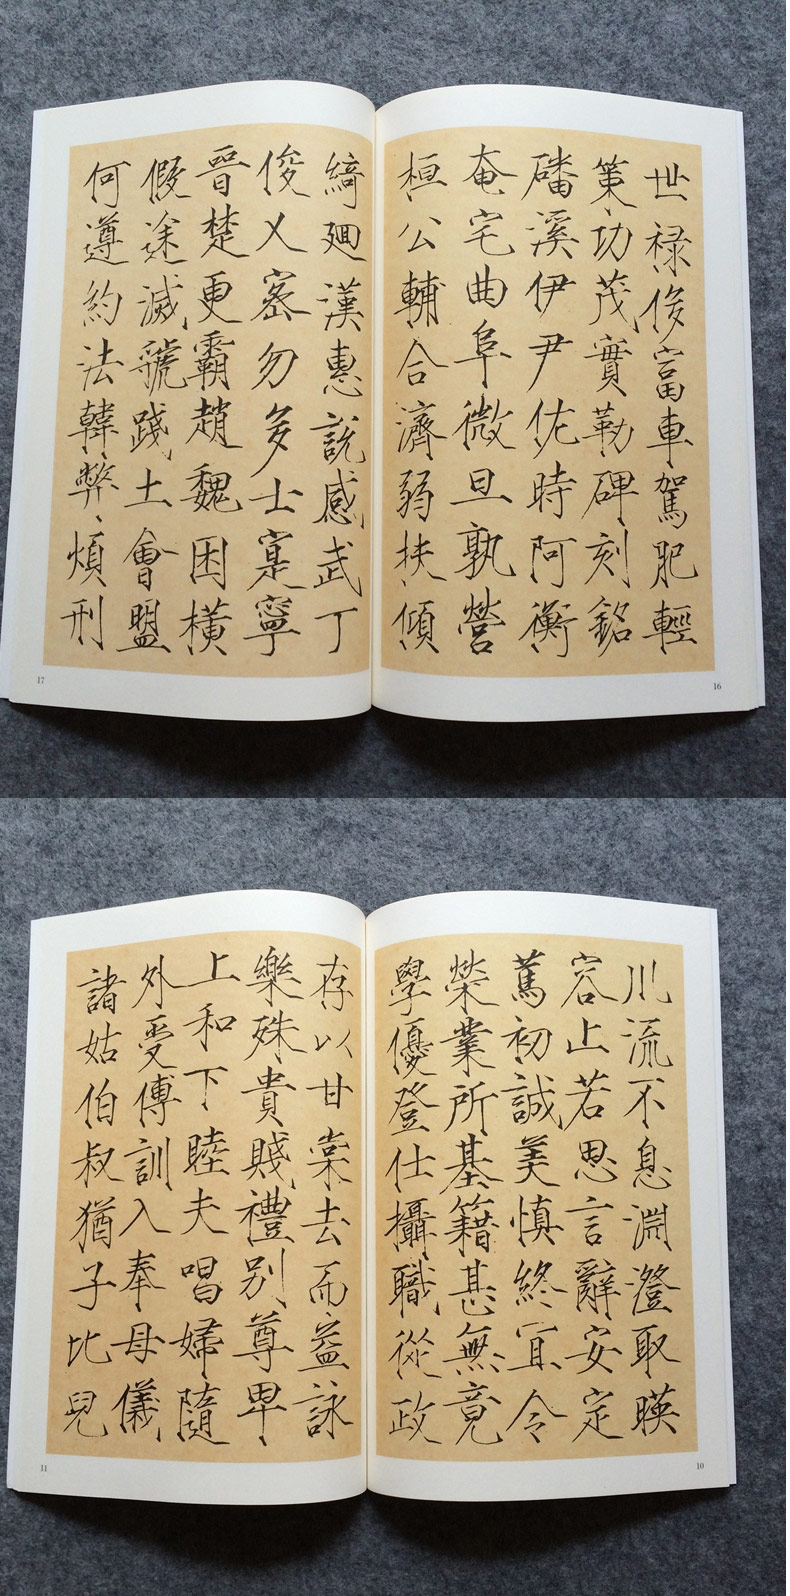 世禄侈富車駕肥輕
策功茂實勒碑刻銘
磻溪伊尹佐時阿衡
奄宅曲阜微旦孰營
桓公輔合濟弱扶傾
綺迴漢惠説感武丁
俊乂密勿多士寔寧
晉楚更霸趙魏困橫
假途滅虢踐土會盟
何遵約法韓弊煩刑
17
16
川流不息淵澄取暎
容止若思言辭安定
篤初誠美慎終宜令
榮業所基籍甚無竟
學優登仕攝職從政
存以甘棠去而益詠
樂殊貴賤禮别尊卑
上和下睦夫唱婦隨
外受傅訓入奉母儀
諸姑伯叔猶子比兒
11
10